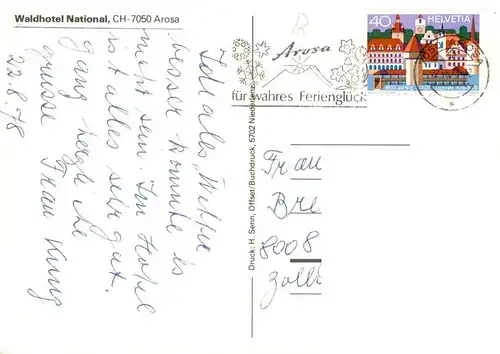 Waldhotel National, CH-7050 Arosa
Ideales Wetter
besser könnte es
nicht sein Im Hotel
ist alles sehr gut.
herzliche
grüsse Frau
22.8.78
Druck: H. Senn, Offset/Buchdruck, 5702 Niederlenz
R
Arosa
für wahres Ferienglück
40 HELVETIA
Frau
Bre
8008
Zolli